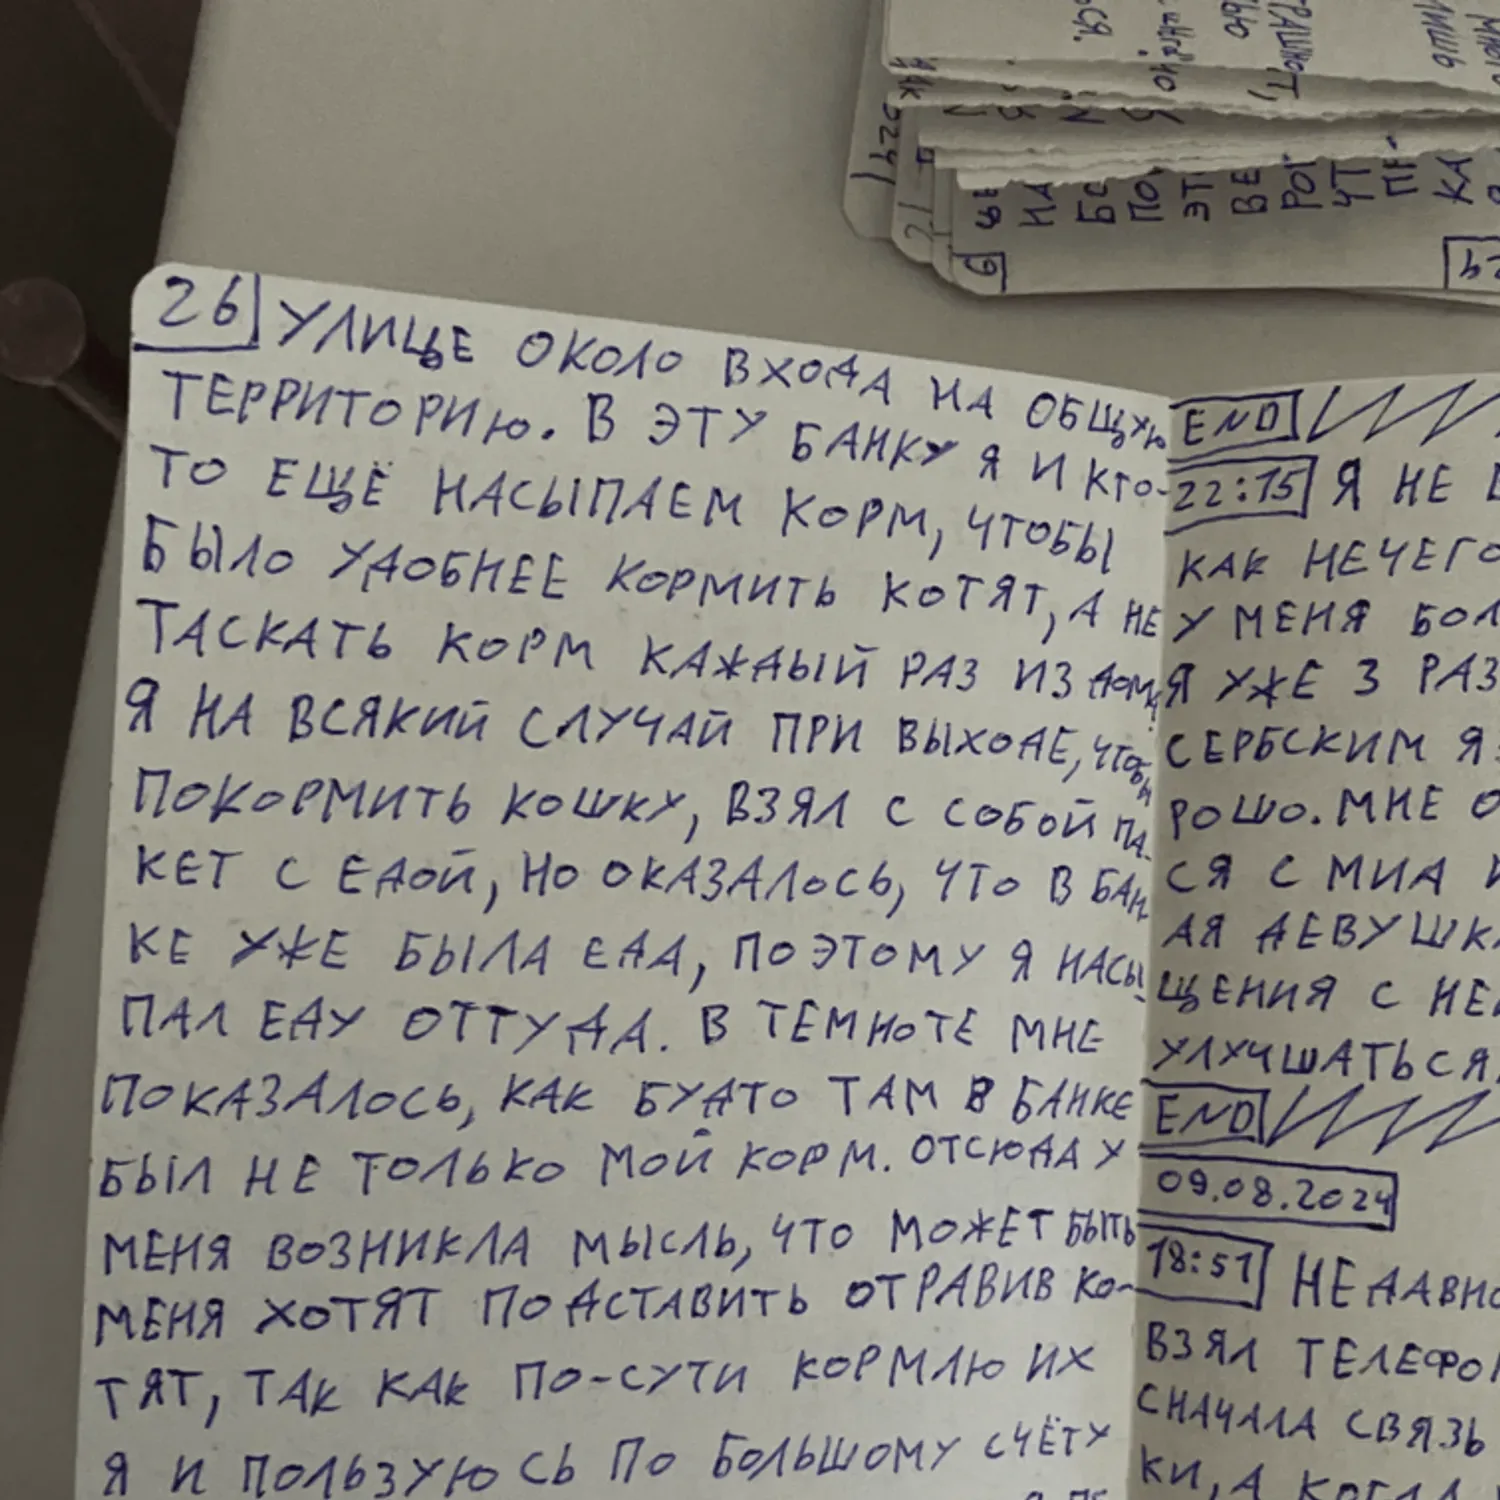 26 УЛИЦЕ ОКОЛО ВХОДА НА ОБЩУЮ
ТЕРРИТОРИЮ. В ЭТУ БАНКУ Я И КТО-
ТО ЕЩЁ НАСЫПАЕМ КОРМ, ЧТОБЫ
БЫЛО УДОБНЕЕ КОРМИТЬ КОТЯТ, А НЕ
ТАСКАТЬ КОРМ КАЖДЫЙ РАЗ ИЗ ДОМА.
Я НА ВСЯКИЙ СЛУЧАЙ ПРИ ВЫХОДЕ, ЧТОБЫ
ПОКОРМИТЬ КОШКУ, ВЗЯЛ С СОБОЙ ПА-
КЕТ С ЕДОЙ, НО ОКАЗАЛОСЬ, ЧТО В БАН-
КЕ УЖЕ БЫЛА ЕДА, ПОЭТОМУ Я НАСЫ-
ПАЛ ЕДУ ОТТУДА. В ТЕМНОТЕ МНЕ
ПОКАЗАЛОСЬ, КАК БУДТО ТАМ В БАНКЕ
БЫЛ НЕ ТОЛЬКО МОЙ КОРМ. ОТСЮДА У
МЕНЯ ВОЗНИКЛА МЫСЛЬ, ЧТО МОЖЕТ БЫТЬ
МЕНЯ ХОТЯТ ПОДСТАВИТЬ ОТРАВИВ КО-
ТЯТ, ТАК КАК ПО-СУТИ КОРМЛЮ ИХ
Я И ПОЛЬЗУЮСЬ ПО БОЛЬШОМУ СЧЁТУ
END
22:15 Я НЕ
КАК НЕЧЕГО
У МЕНЯ БОЛ
Я УЖЕ 3 РАЗ
СЕРБСКИМ Я
РОШО. МНЕ О
СЯ С МИА И
АЯ ДЕВУШК
ЩЕНИЯ С НЕ
УЛУЧШАТЬСЯ.
END
09.08.2024
18:51 НЕДАВНО
ВЗЯЛ ТЕЛЕФОН
СНАЧАЛА СВЯЗЬ
КИ, А КОГДА